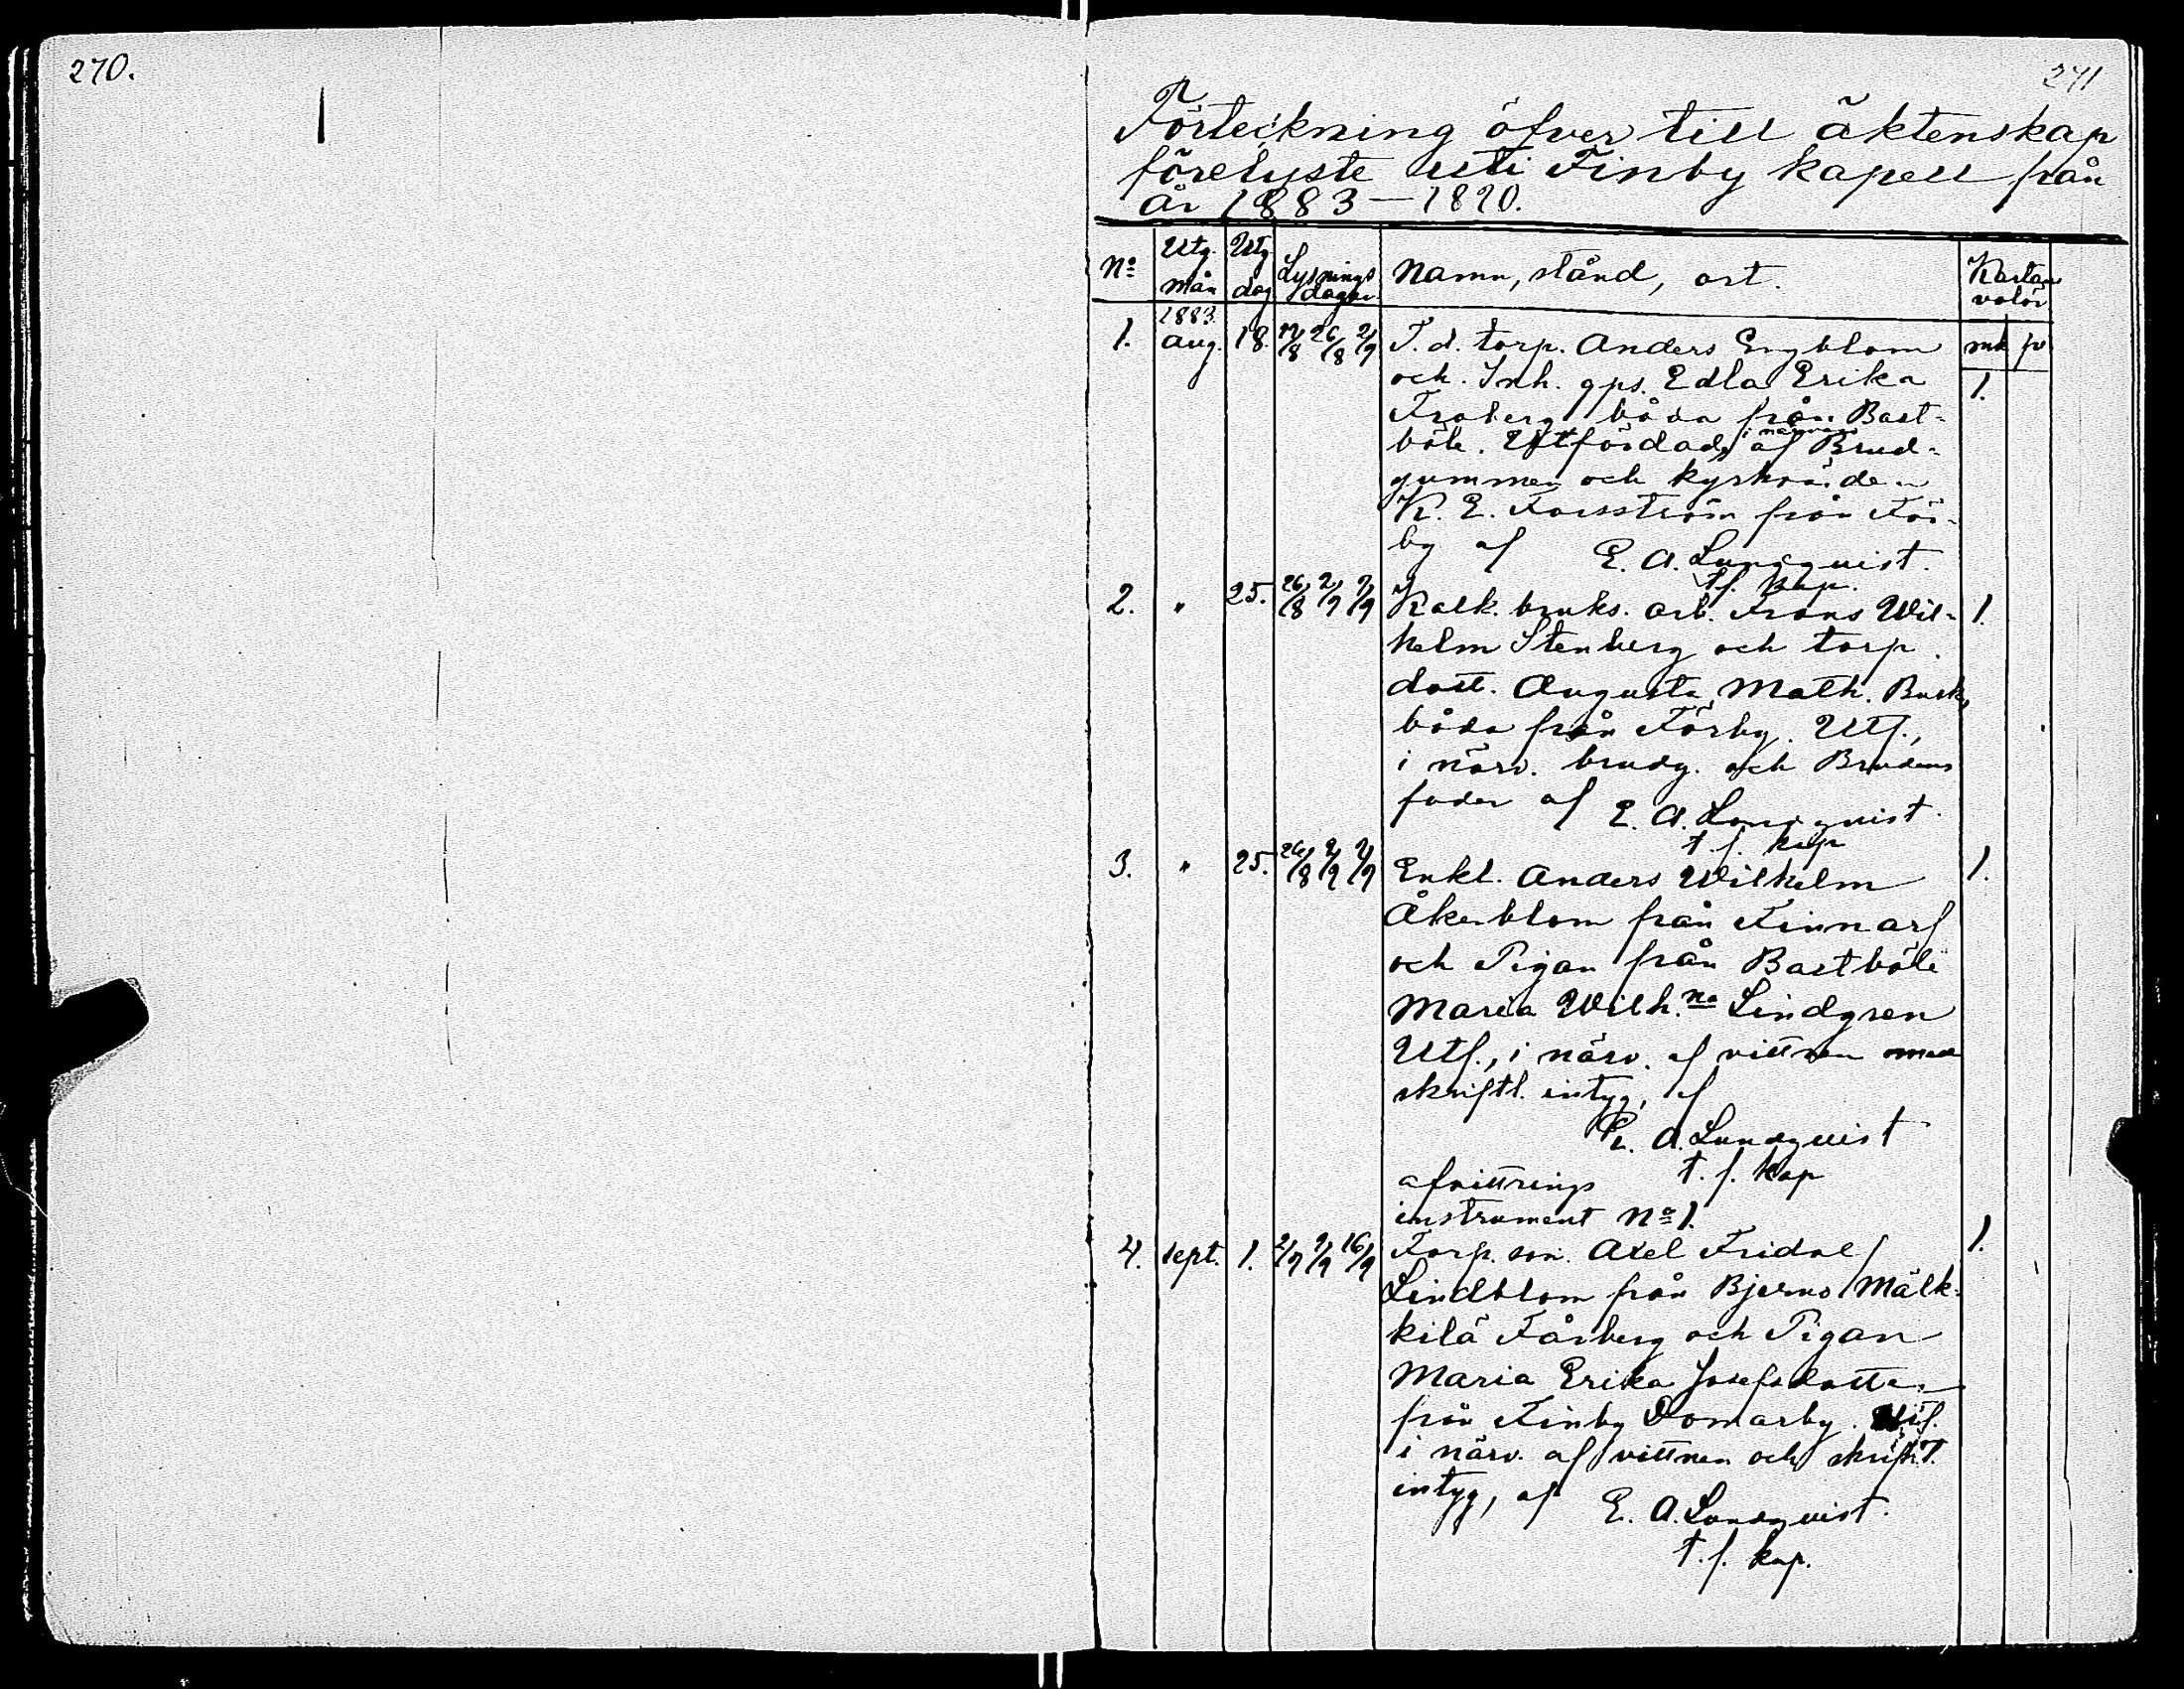 270.
271
Förteckning öfver till äktenskap
förelyste uti Finby kapell från
år 1883—1890.
No Utg. mån Utg dag Lysnings dagar Namn, stånd, ort. Kartans valör
1883 mk p
1. Aug. 18. 19/8 26/8 2/9 F. d. torp. Anders Engblom
och Inh. gps. Edla Erika 1.
Froberg båda från Bast-
böle. Utfördad i närvaro af Brud-
gummen och kyrkvärden
K. E. Forsström från För-
by af E. A. Lundqvist.
t.f. kap.
2. " 25. 26/8 2/9 9/9 Kalk. bruks. arb. Frans Wil- 1.
helm Stenberg och torp.
dott. Augusta Math. Busk,
båda från Förby. Utf.,
i närv. brudg. och Brudens
fader af E. A. Lundqvist.
t. f. kap
3. " 25. 26/8 2/9 9/9 Enkl. Anders Wilhelm 1.
Åkerblom från Finnarf
och Pigan från Bastböle
Maria Wilh.na Lindgren
Utf., i närv. af vittnen med
skriftl. intyg, af
E. A. Lundqvist
t. f. kap
afvittrings
instrument No 1.
4. Sept. 1. 2/9 9/9 16/9 Torp. son. Axel Fridolf 1.
Lindblom från Bjerno Mälk-
kilä Fårberg och Pigan
Maria Erika Josefsdotter
från Finby Domarby. Utf.
i närv. af vittnen och skriftl.
intyg, af E. A. Lundqvist.
t. f. kap.